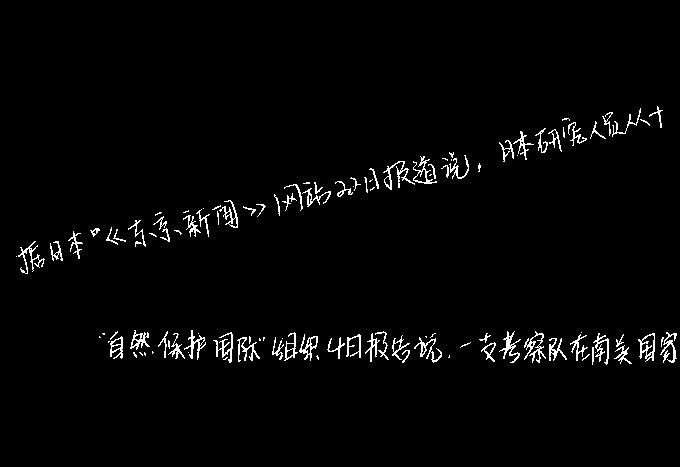 据日本《东京新闻》网站22日报道说，日本研究人员从十
“自然保护国际”组织4日报告说，一支考察队在南美国家